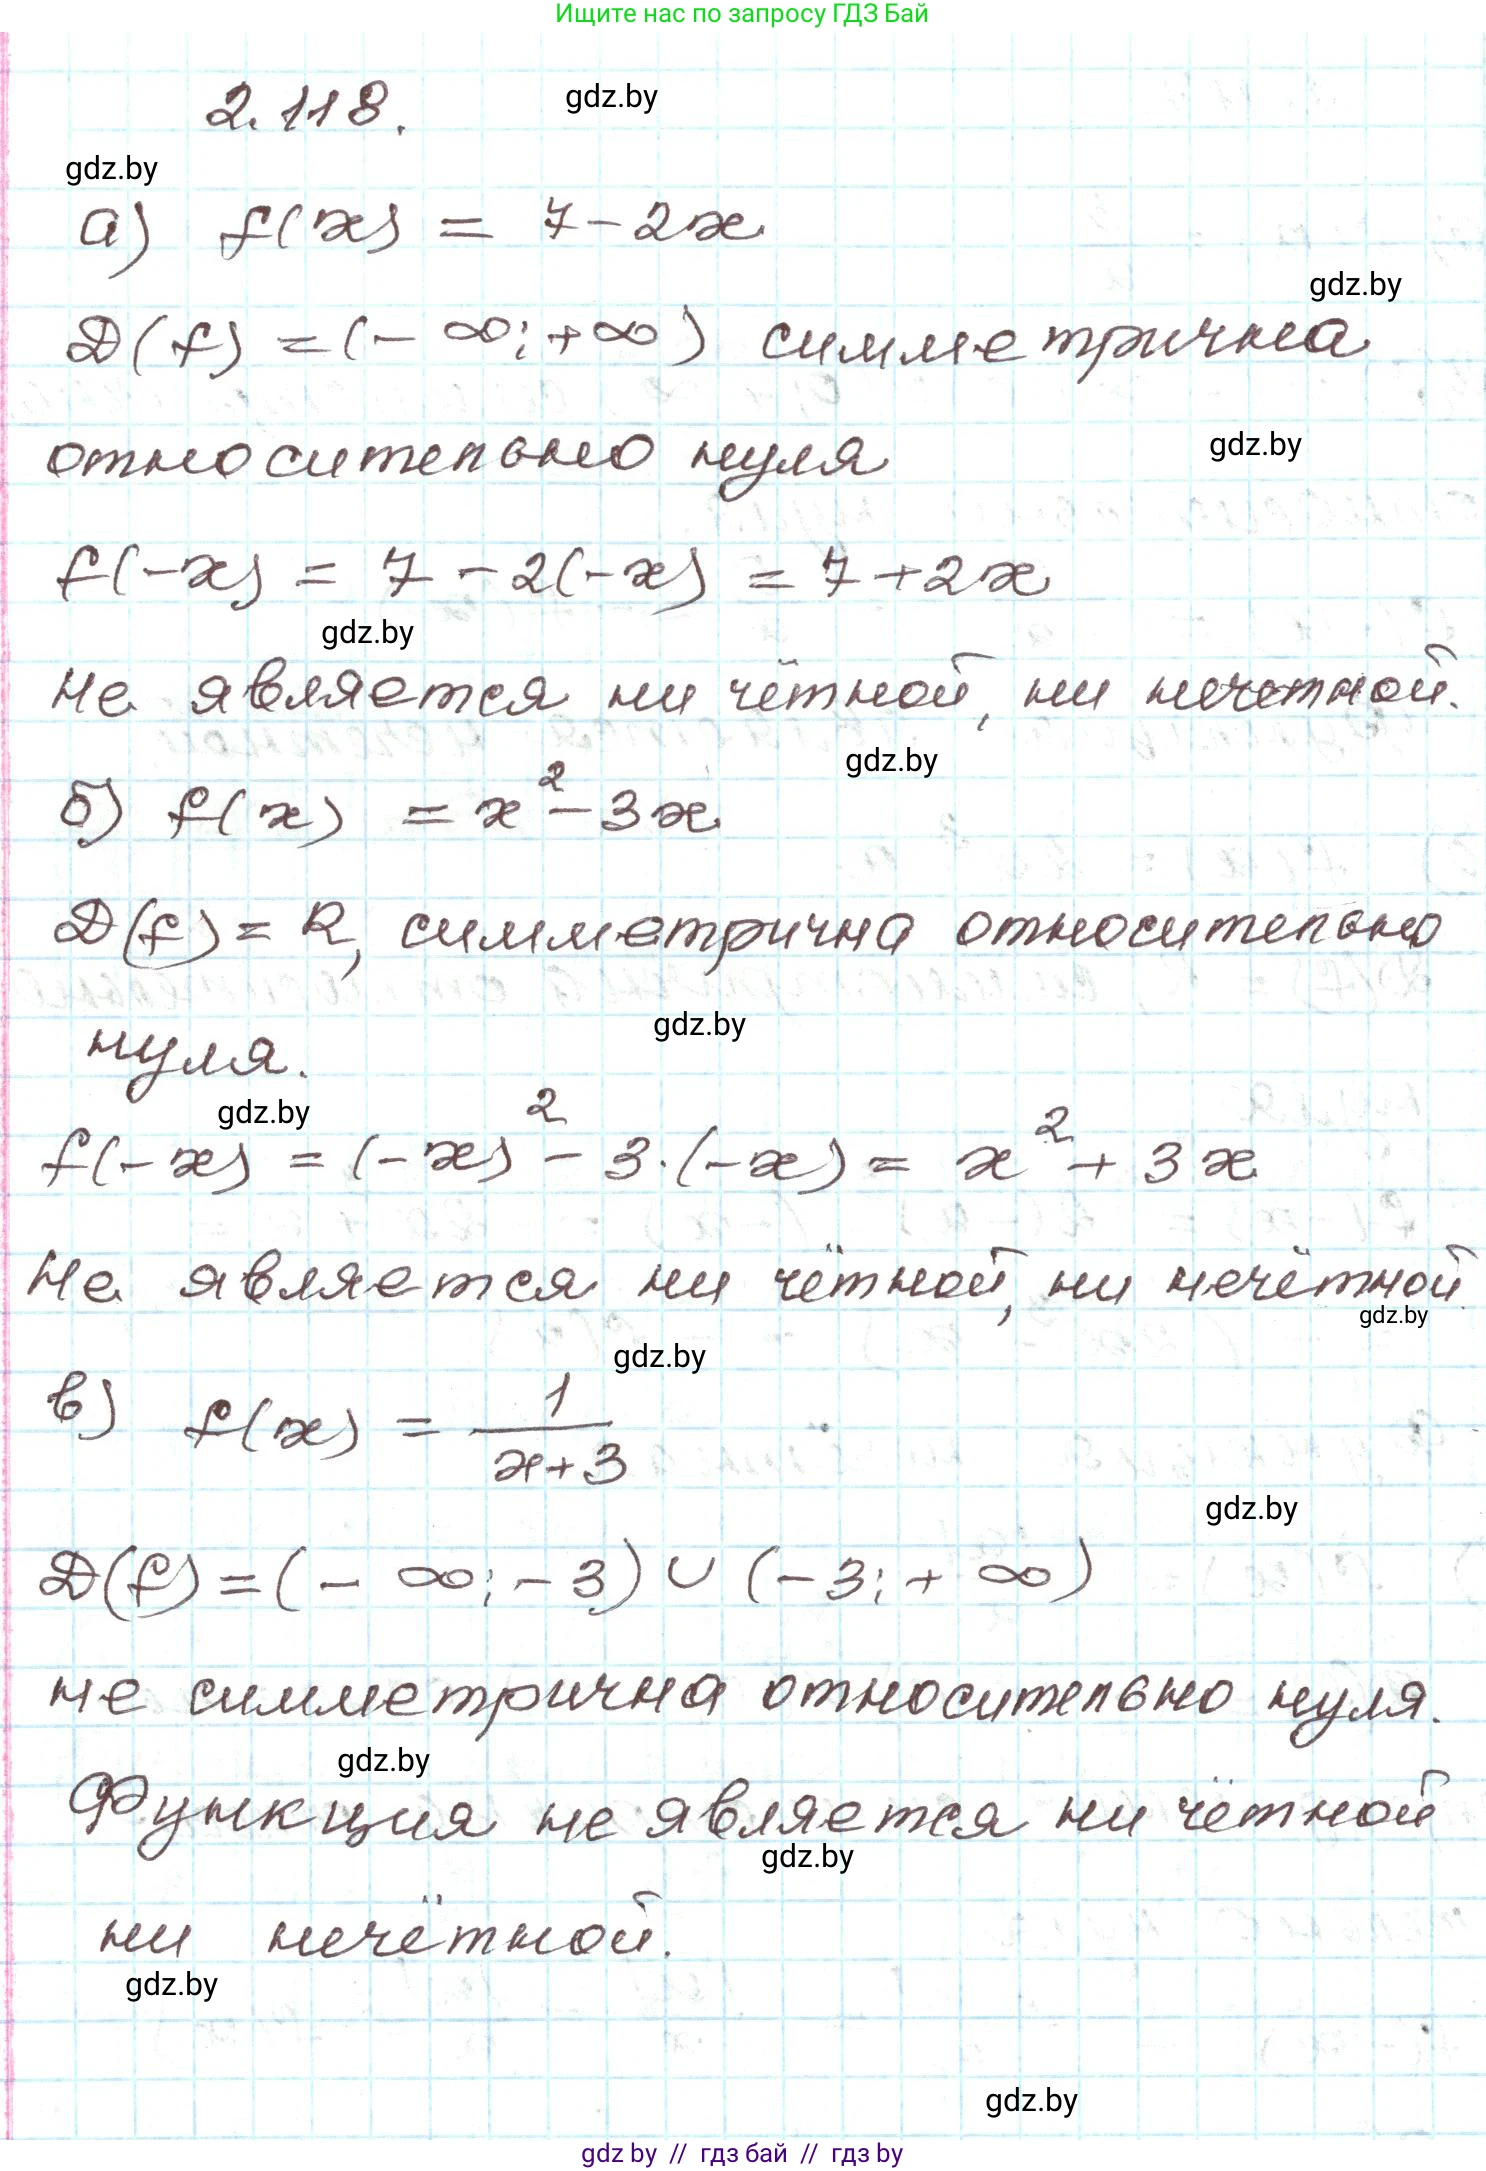 Ищите нас по запросу ГДЗ Бай
2.118.
gdz.by
gdz.by
а) f(x) = 7 - 2x
gdz.by
D(f) = (-∞; +∞) симметрична
относительно нуля
gdz.by
f(-x) = 7 - 2(-x) = 7 + 2x
gdz.by
не является ни чётной, ни нечетной.
gdz.by
б) f(x) = x² - 3x
D(f) = R, симметрична относительно
нуля.
gdz.by
gdz.by
f(-x) = (-x)² - 3·(-x) = x² + 3x
Не является ни чётной, ни нечётной
gdz.by
gdz.by
в) f(x) = 1/(x+3)
gdz.by
D(f) = (-∞; -3) ∪ (-3; +∞)
не симметрична относительно нуля.
gdz.by
Функция не является ни чётной
gdz.by
ни нечётной.
gdz.by
gdz.by
gdz by // гдз бай // гдз by